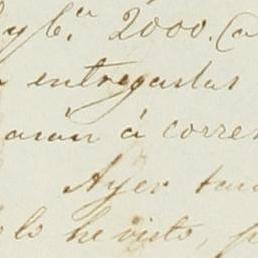 y 6.ª 2000. (a
entregarlas
arán á corres
Ayer tam
lo he visto, p